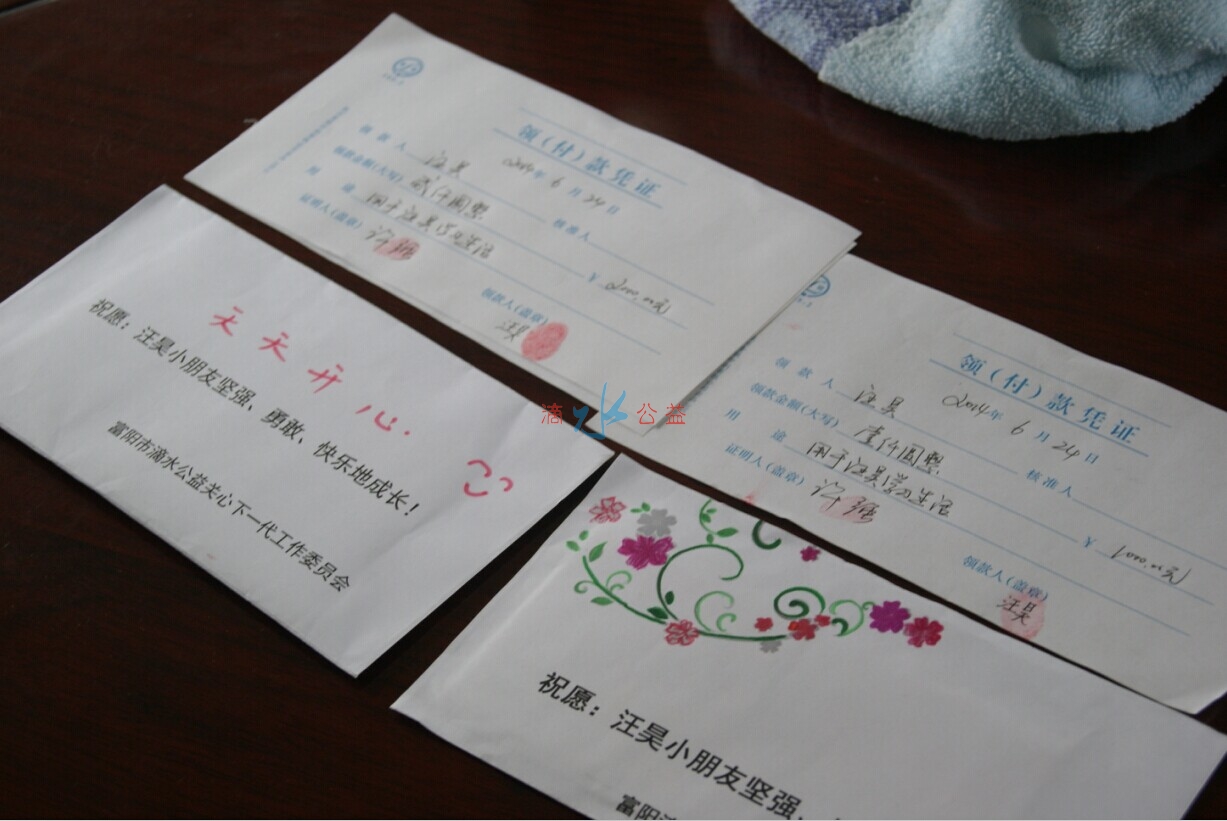 领(付)款凭证
2014年 6 月 24 日
领 款 人 汪昊
领款金额(大写) 贰仟圆整 核准人
用 途 用于汪昊学习生活 ¥ 2000.00元
证明人(盖章)
领款人(盖章)
汪昊
领(付)款凭证
2014年 6 月 24 日
领 款 人 汪昊
领款金额(大写) 壹仟圆整 核准人
用 途 用于汪昊学习生活 ¥ 1000.00元
证明人(盖章)
领款人(盖章)
汪昊
天天开心.
祝愿：汪昊小朋友坚强、勇敢、快乐地成长！
富阳市滴水公益关心下一代工作委员会
滴水公益
祝愿：汪昊小朋友坚强、
富阳